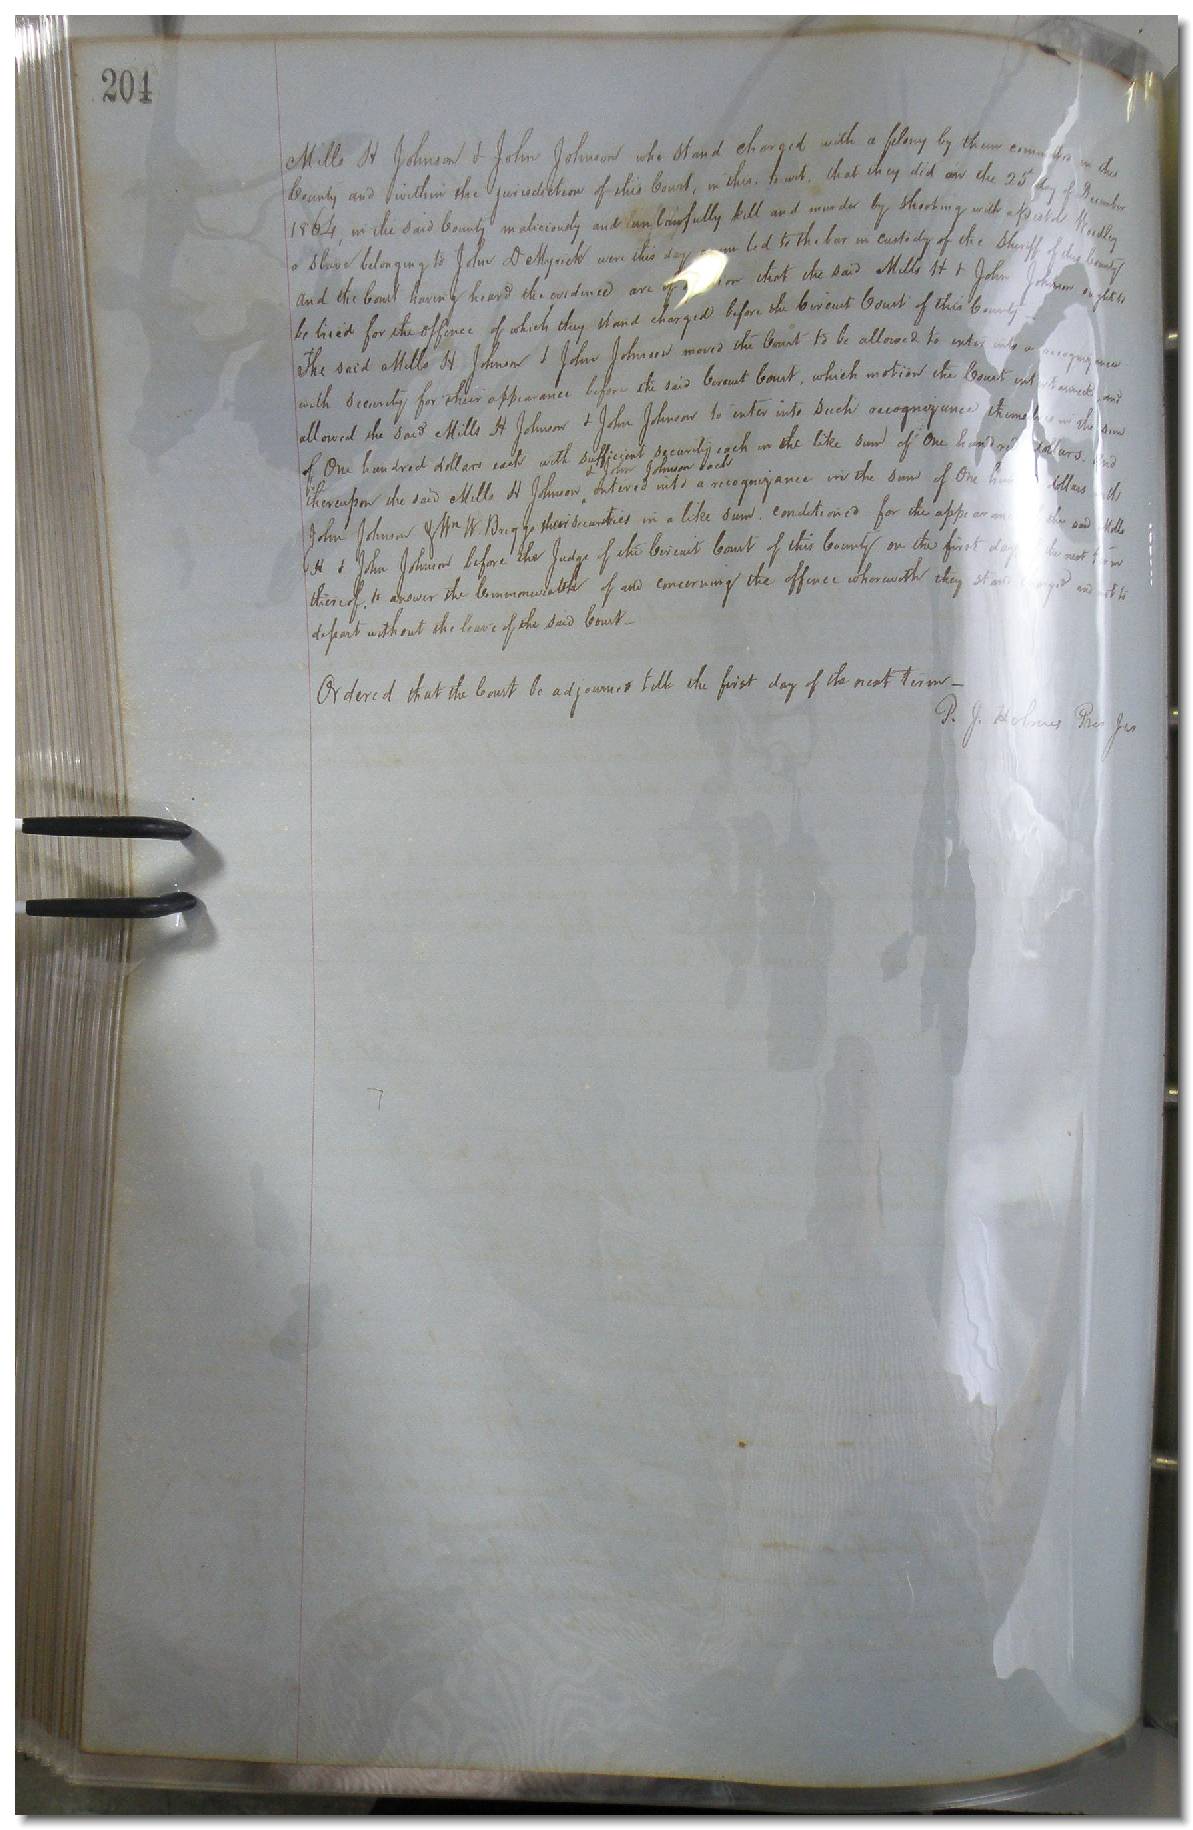 204
Mills H Johnson & John Johnson who stand charged with a felony by them committed in this
County and within the jurisdiction of this Court, in this. to wit. that they did on the 25 day of December
1864, in the said County maliciously and unlawfully kill and murder by shooting with a pistol
a slave belonging to John D Myrick were this day led to the bar in custody of the Sheriff of this County
and the Court having heard the evidence are of that the said Mills H & John Johnson ought to
be tried for the offence of which they stand charged before the Circuit Court of this County.
The said Mills H Johnson & John Johnson moved the Court to be allowed to enter into a recognizance
with security for their appearance before the said Circuit Court, which motion the Court and
allowed the said Mills H Johnson & John Johnson to enter into such recognizance themselves in the sum
of One hundred dollars each with sufficient security each in the like sum of One hundred dollars. And
& John Johnson each
thereupon the said Mills H Johnson ^ entered into a recognizance in the sum of One dollars with
John Johnson & Wm W Briggs their securities in a like sum. conditioned for the appearance the said Mills
H & John Johnson before the Judge of the Circuit Court of this County on the first day the next term
thereof. to answer the Commonwealth of and concerning the offence wherewith they stand charged and not to
depart without the leave of the said Court –
Ordered that the Court be adjourned till the first day of the next term –
P. J. Holmes Pres Jus